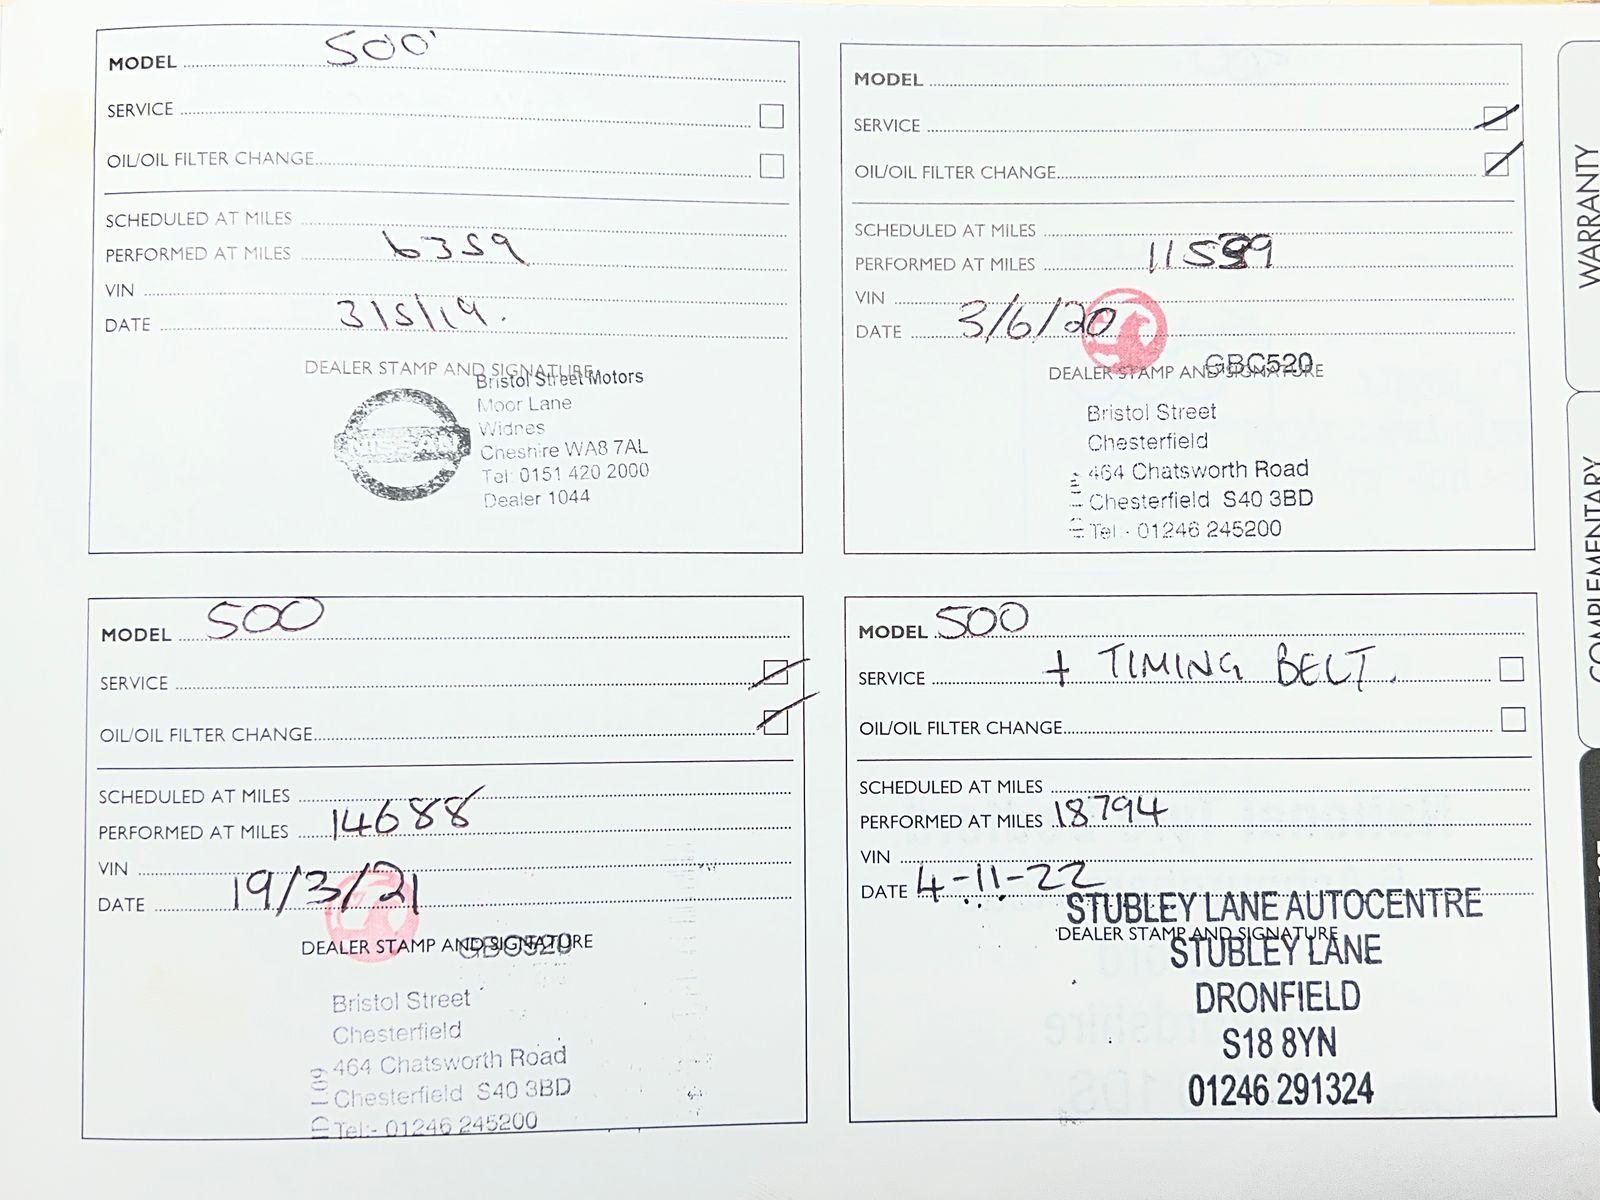 MODEL 500
SERVICE
OIL/OIL FILTER CHANGE
SCHEDULED AT MILES
PERFORMED AT MILES 6359
VIN
DATE 3/5/19.
DEALER STAMP AND SIGNATURE
NISSAN
Bristol Street Motors
Moor Lane
Widnes
Cheshire WA8 7AL
Tel: 0151 420 2000
Dealer 1044
MODEL
SERVICE
OIL/OIL FILTER CHANGE
SCHEDULED AT MILES
PERFORMED AT MILES
VIN
DATE 3/6/20
GBC520
DEALER STAMP AND SIGNATURE
Bristol Street
Chesterfield
464 Chatsworth Road
Chesterfield S40 3BD
Tel:- 01246 245200
MODEL 500
SERVICE
OIL/OIL FILTER CHANGE
SCHEDULED AT MILES
PERFORMED AT MILES 14688
VIN
DATE 19/3/21
DEALER STAMP AND SIGNATURE
GBC520
Bristol Street
Chesterfield
464 Chatsworth Road
Chesterfield S40 3BD
Tel:- 01246 245200
MODEL 500
SERVICE + TIMING BELT.
OIL/OIL FILTER CHANGE
SCHEDULED AT MILES
PERFORMED AT MILES 18794
VIN
DATE 4-11-22
STUBLEY LANE AUTOCENTRE
DEALER STAMP AND SIGNATURE
STUBLEY LANE
DRONFIELD
S18 8YN
01246 291324
WARRANTY
COMPLEMENTARY